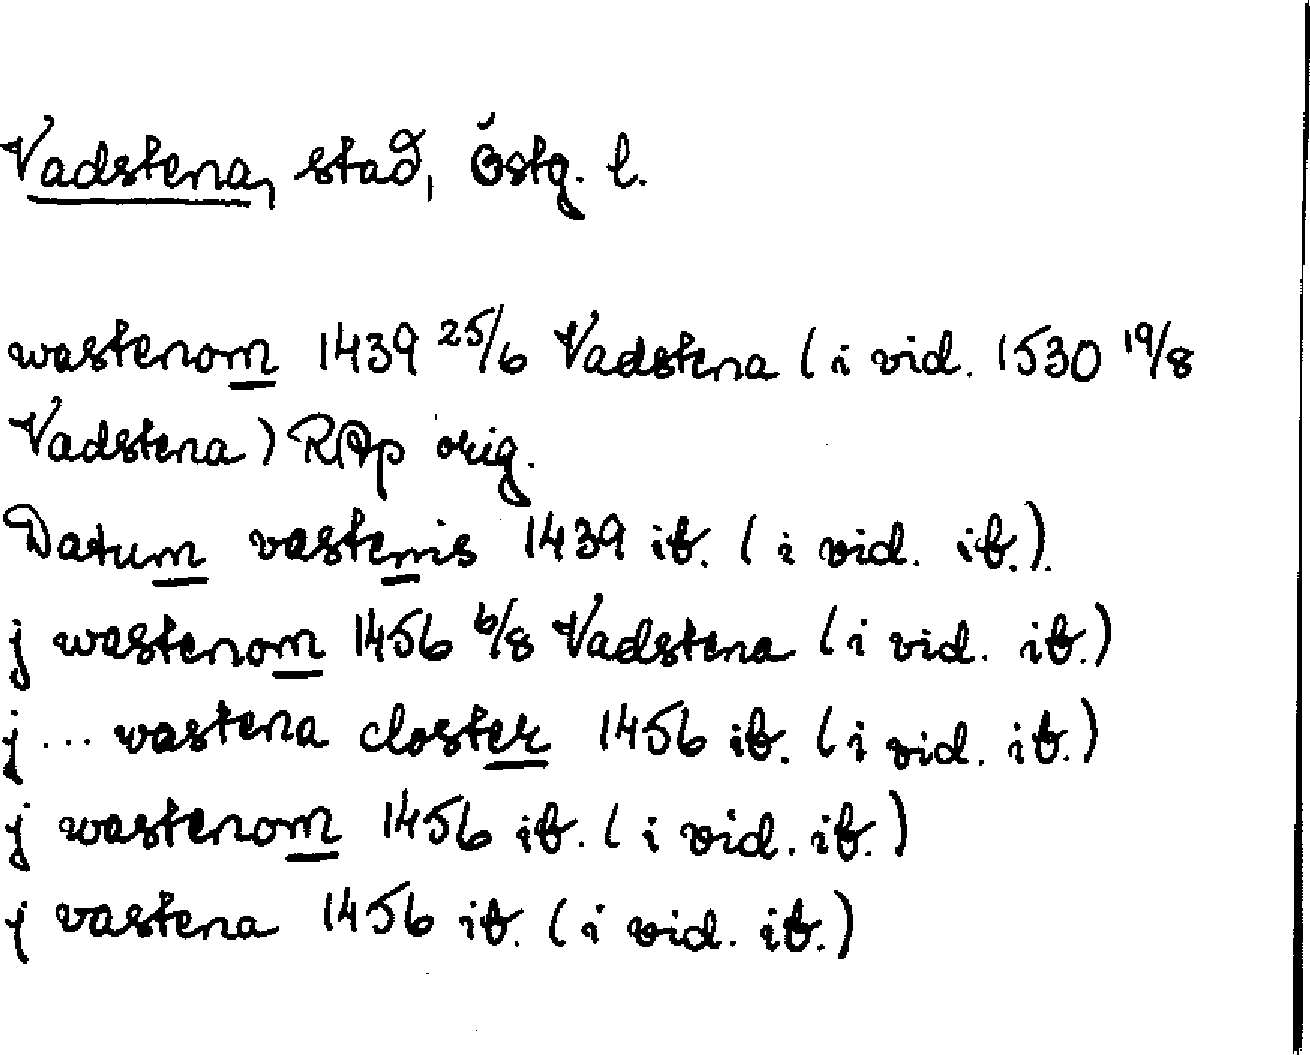 Vadstena, stad, Östg. l.
wastenom 1439 25/6 Vadstena (i vid. 1530 19/8
Vadstena) RAp orig.
Datum vastenis 1439 ib. (i vid. ib.).
j wastenom 1456 6/8 Vadstena (i vid. ib.)
j ... wastena closter 1456 ib. (i vid. ib.)
j wastenom 1456 ib. (i vid. ib.)
j vastena 1456 ib. (i vid. ib.)